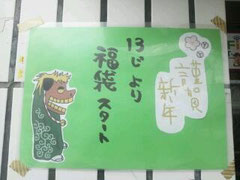 謹賀
新年
13じより
福袋
スタート